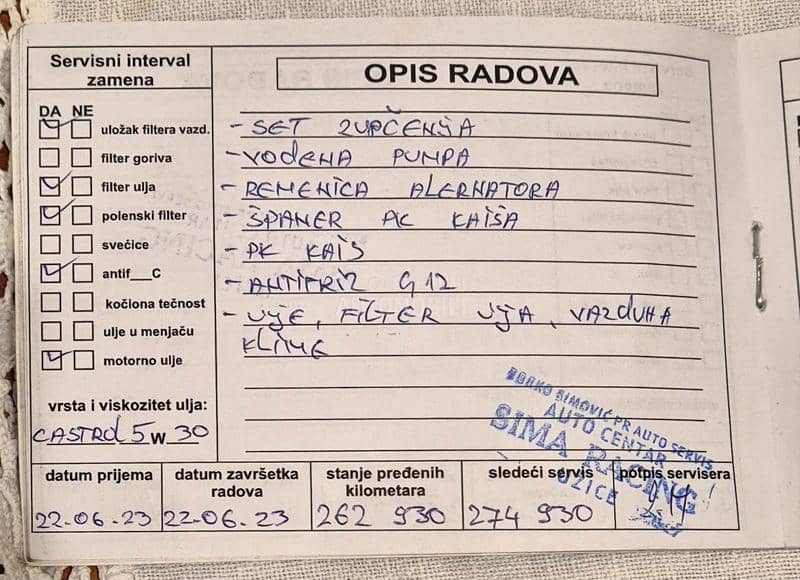 Servisni interval
zamena
DA NE
uložak filtera vazd.
filter goriva
filter ulja
polenski filter
svećice
antif___C
kočiona tečnost
ulje u menjaču
motorno ulje
vrsta i viskozitet ulja:
CASTROL 5W30
OPIS RADOVA
- SET ZUPČENJA
- VODENA PUMPA
- REMENICA ALERNATORA
- ŠPANER PK KAIŠA
- PK KAIŠ
- ANTIFRIZ G12
- ULJE, FILTER ULJA, VAZDUHA
KLIME
BORKO SIMOVIĆ PR AUTO SERVIS
AUTO CENTAR
SIMA RACING
UŽICE
datum prijema
22.06.23
datum završetka
radova
22.06.23
stanje pređenih
kilometara
262 930
sledeći servis
274 930
potpis servisera